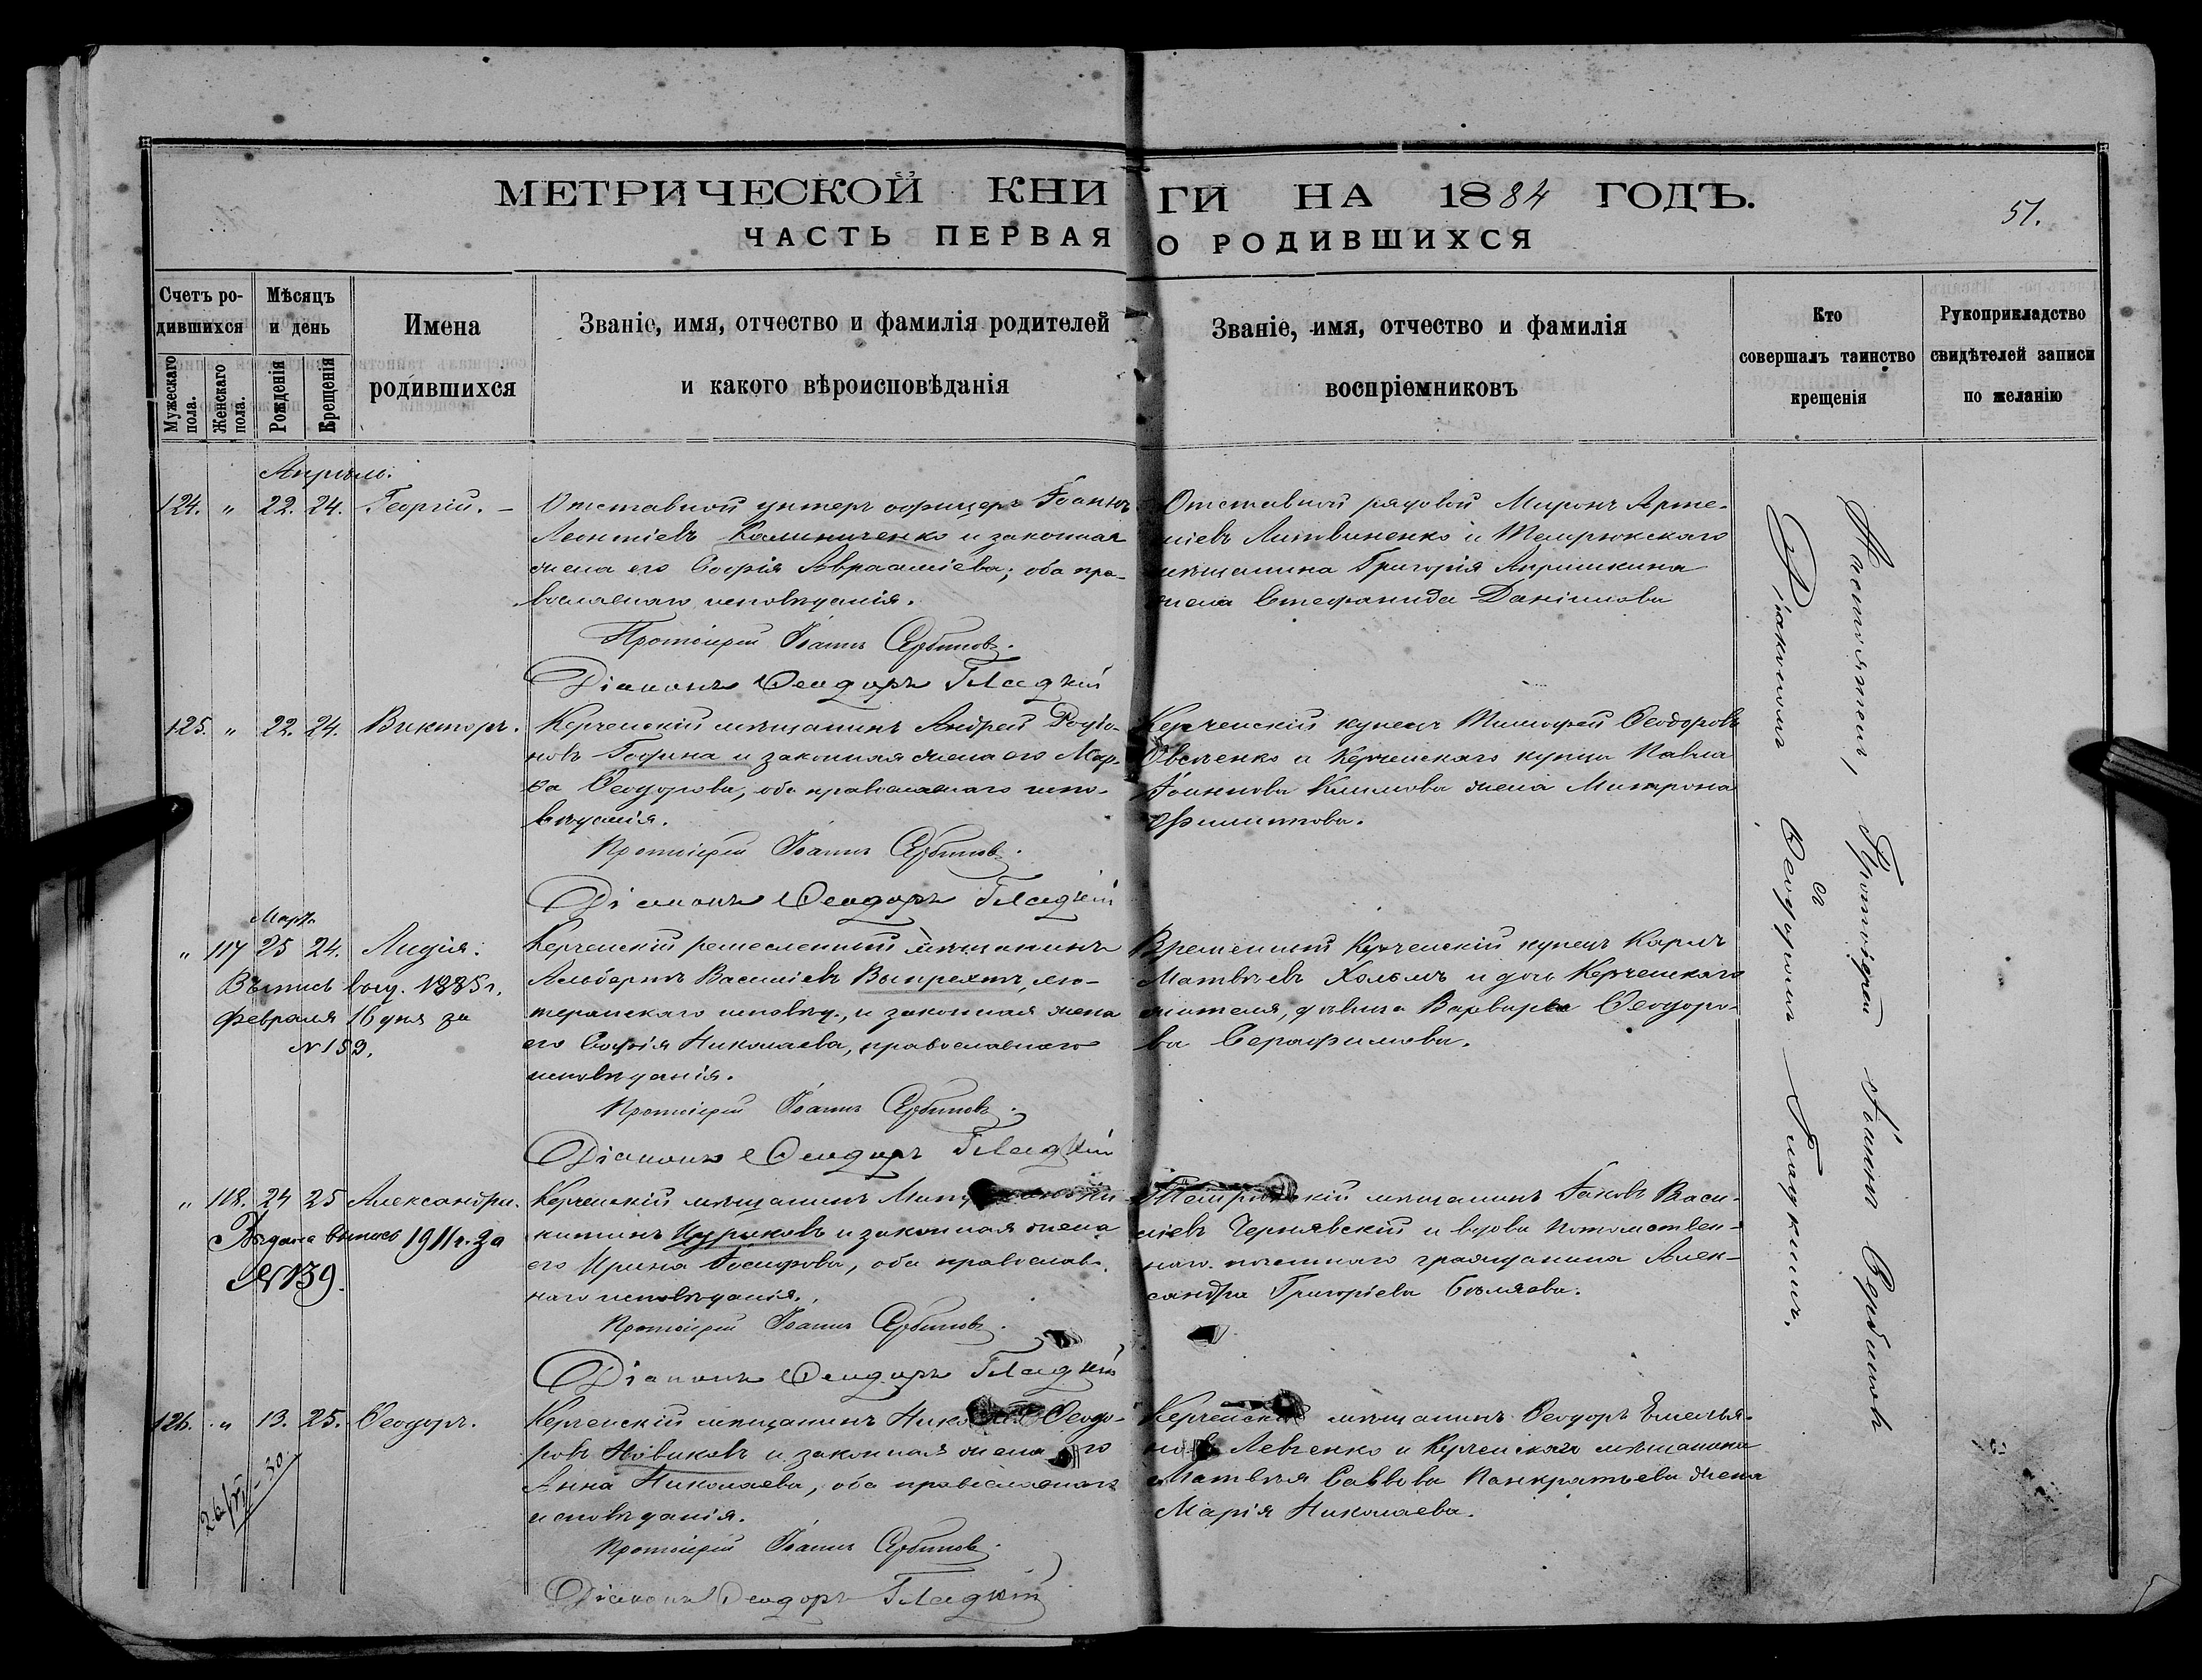 МЕТРИЧЕСКОЙ КНИГИ НА 1884 ГОДЪ.
51.
ЧАСТЬ ПЕРВАЯ О РОДИВШИХСЯ
Счетъ родившихся
Мужескаго пола.
Женскаго пола.
Мѣсяцъ и день
Рожденія
Крещенія
Имена родившихся
Званіе, имя, отчество и фамилія родителей
и какого вѣроисповѣданія
Званіе, имя, отчество и фамилія
воспріемниковъ
Кто
совершалъ таинство
крещенія
Рукоприкладство
свидѣтелей записи
по желанію
Апрѣль.
124. " 22. 24. Георгій. –
Отставной унтеръ офицеръ Іоаннъ
Леонтіевъ Калиниченко и законная
жена его Софія Авраміева; оба пра-
вославнаго исповѣданія.
Протоіерей Іоаннъ Сербиновъ.
Діаконъ Ѳеодоръ Гладкій
Отставной рядовой Миронъ Арте-
міевъ Литвиненко и Темрюкскаго
мѣщанина Григорія
жена Стефанида Даніилова
125. " 22. 24. Викторъ.
Керченскій мѣщанинъ Андрей Родіо-
новъ Година и законная жена его Мар-
Ѳеодорова, оба православнаго испо-
вѣданія.
Протоіерей Іоаннъ Сербиновъ.
Діаконъ Ѳеодоръ Гладкій
Керченскій купецъ Тимофей Ѳеодоровъ
и Керченскаго купца Павла
Іоаннова Климова жена Матрона
Филиппова.
Март.
" 117 25 24. Лидія.
Выпись выд. 1885 г.
Февраля 16 дня за
№ 159.
Керченскій ремесленный мѣщанинъ
Альбертъ Василіевъ Выпрехтъ, лю-
теранскаго исповѣд., и законная жена
его Софія Николаева, православнаго
исповѣданія.
Протоіерей Іоаннъ Сербиновъ.
Діаконъ Ѳеодоръ Гладкій
Временный Керченскій купецъ Карлъ
Матвѣевъ Хольмъ и дочь Керченскаго
жителя, дѣвица Варвара Ѳеодоро-
ва Серафимова.
" 118. 24 25 Александра.
Выдана выпись 1911 г. за
№ 139.
Керченскій мѣщанинъ
Цуриковъ и законная жена
его Ирина Іосифова, оба православ-
наго исповѣданія.
Протоіерей Іоаннъ Сербиновъ.
Діаконъ Ѳеодоръ Гладкій
мѣщанинъ Іаковъ Васи-
ліевъ Чернявскій и вдова потомствен-
наго почетнаго гражданина Алек-
сандра Григоріева Бѣляева.
126. " 13. 25. Ѳеодоръ.
Керченскій мѣщанинъ Николай Ѳеодо-
ровъ Новиковъ и законная жена его
Анна Николаева, оба православнаго
исповѣданія.
Протоіерей Іоаннъ Сербиновъ.
Діаконъ Ѳеодоръ Гладкій
Керченскій мѣщанинъ Ѳеодоръ Емелья-
новъ Левченко и Керченскаго мѣщанина
Матвѣя Саввова Панкратьева жена
Марія Николаева.
Настоятель, Протоіерей Іоаннъ Сербиновъ
съ
Діакономъ Ѳеодоромъ Гладкимъ.